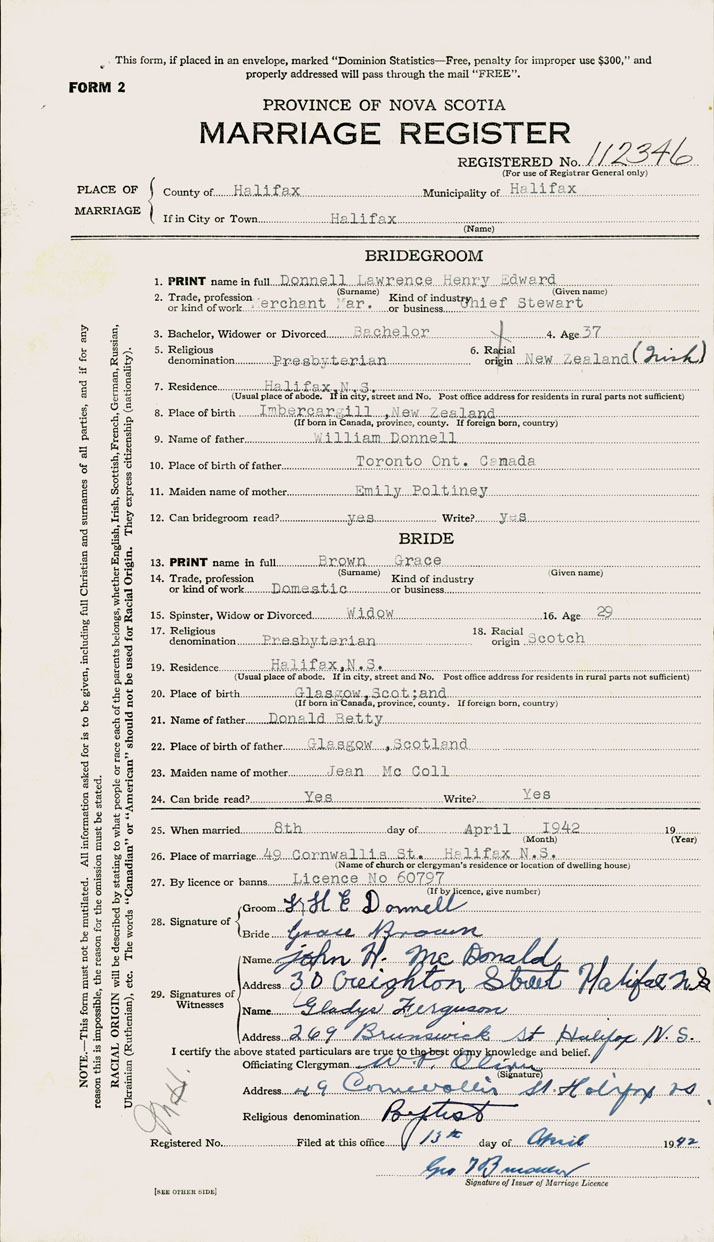 This form, if placed in an envelope, marked "Dominion Statistics—Free, penalty for improper use $300," and
properly addressed will pass through the mail "FREE".
FORM 2
PROVINCE OF NOVA SCOTIA
MARRIAGE REGISTER
REGISTERED No. 112346
(For use of Registrar General only)
PLACE OF MARRIAGE
County of Halifax Municipality of Halifax
If in City or Town Halifax
(Name)
BRIDEGROOM
1. PRINT name in full Donnell Lawrence Henry Edward
(Surname) (Given name)
2. Trade, profession or kind of work Merchant Mar. Kind of industry or business Chief Stewart
3. Bachelor, Widower or Divorced Bachelor 4. Age 37
5. Religious denomination Presbyterian 6. Racial origin New Zealand (Irish)
7. Residence Halifax,N.S.
(Usual place of abode. If in city, street and No. Post office address for residents in rural parts not sufficient)
8. Place of birth Imbercargill ,New Zealand
(If born in Canada, province, county. If foreign born, country)
9. Name of father William Donnell
10. Place of birth of father Toronto Ont. Canada
11. Maiden name of mother Emily Poltiney
12. Can bridegroom read? yes Write? yes
BRIDE
13. PRINT name in full Brown Grace
(Surname) (Given name)
14. Trade, profession or kind of work Domestic Kind of industry or business
15. Spinster, Widow or Divorced Widow 16. Age 29
17. Religious denomination Presbyterian 18. Racial origin Scotch
19. Residence Halifax,N.S.
(Usual place of abode. If in city, street and No. Post office address for residents in rural parts not sufficient)
20. Place of birth Glasgow,Scot;and
(If born in Canada, province, county. If foreign born, country)
21. Name of father Donald Betty
22. Place of birth of father Glasgow ,Scotland
23. Maiden name of mother Jean Mc Coll
24. Can bride read? Yes Write? Yes
25. When married 8th day of April 1942 19
(Month) (Year)
26. Place of marriage 49 Cornwallis St. Halifax N.S.
(Name of church or clergyman's residence or location of dwelling house)
27. By licence or banns Licence No 60797
(If by licence, give number)
28. Signature of
Groom L H E Donnell
Bride Grace Brown
29. Signatures of Witnesses
Name John H. Mc Donald
Address 30 Creighton Street Halifax N.S
Name Gladys Ferguson
Address 269 Brunswick St Halifax N.S.
I certify the above stated particulars are true to the best of my knowledge and belief.
Officiating Clergyman W. P. Oliver
(Signature)
Address 49 Cornwallis St. Halifax NS.
Religious denomination Baptist
Registered No. Filed at this office 13th day of April 1942
Geo
Signature of Issuer of Marriage Licence
[SEE OTHER SIDE]
NOTE.—This form must not be mutilated. All information asked for is to be given, including full Christian and surnames of all parties, and if for any
reason this is impossible, the reason for the omission must be stated.
RACIAL ORIGIN will be described by stating to what people or race each of the parents belongs, whether English, Irish, Scottish, French, German, Russian,
Ukrainian (Ruthenian), etc. The words "Canadian" or "American" should not be used for Racial Origin. They express citizenship (nationality).